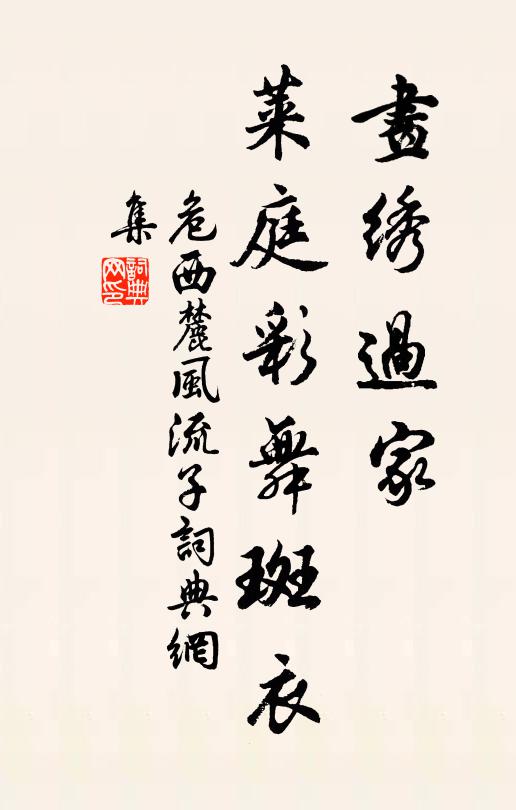 晝绣過家
萊庭彩舞斑衣
危西麓風流子詞典網
集
詞典
网印